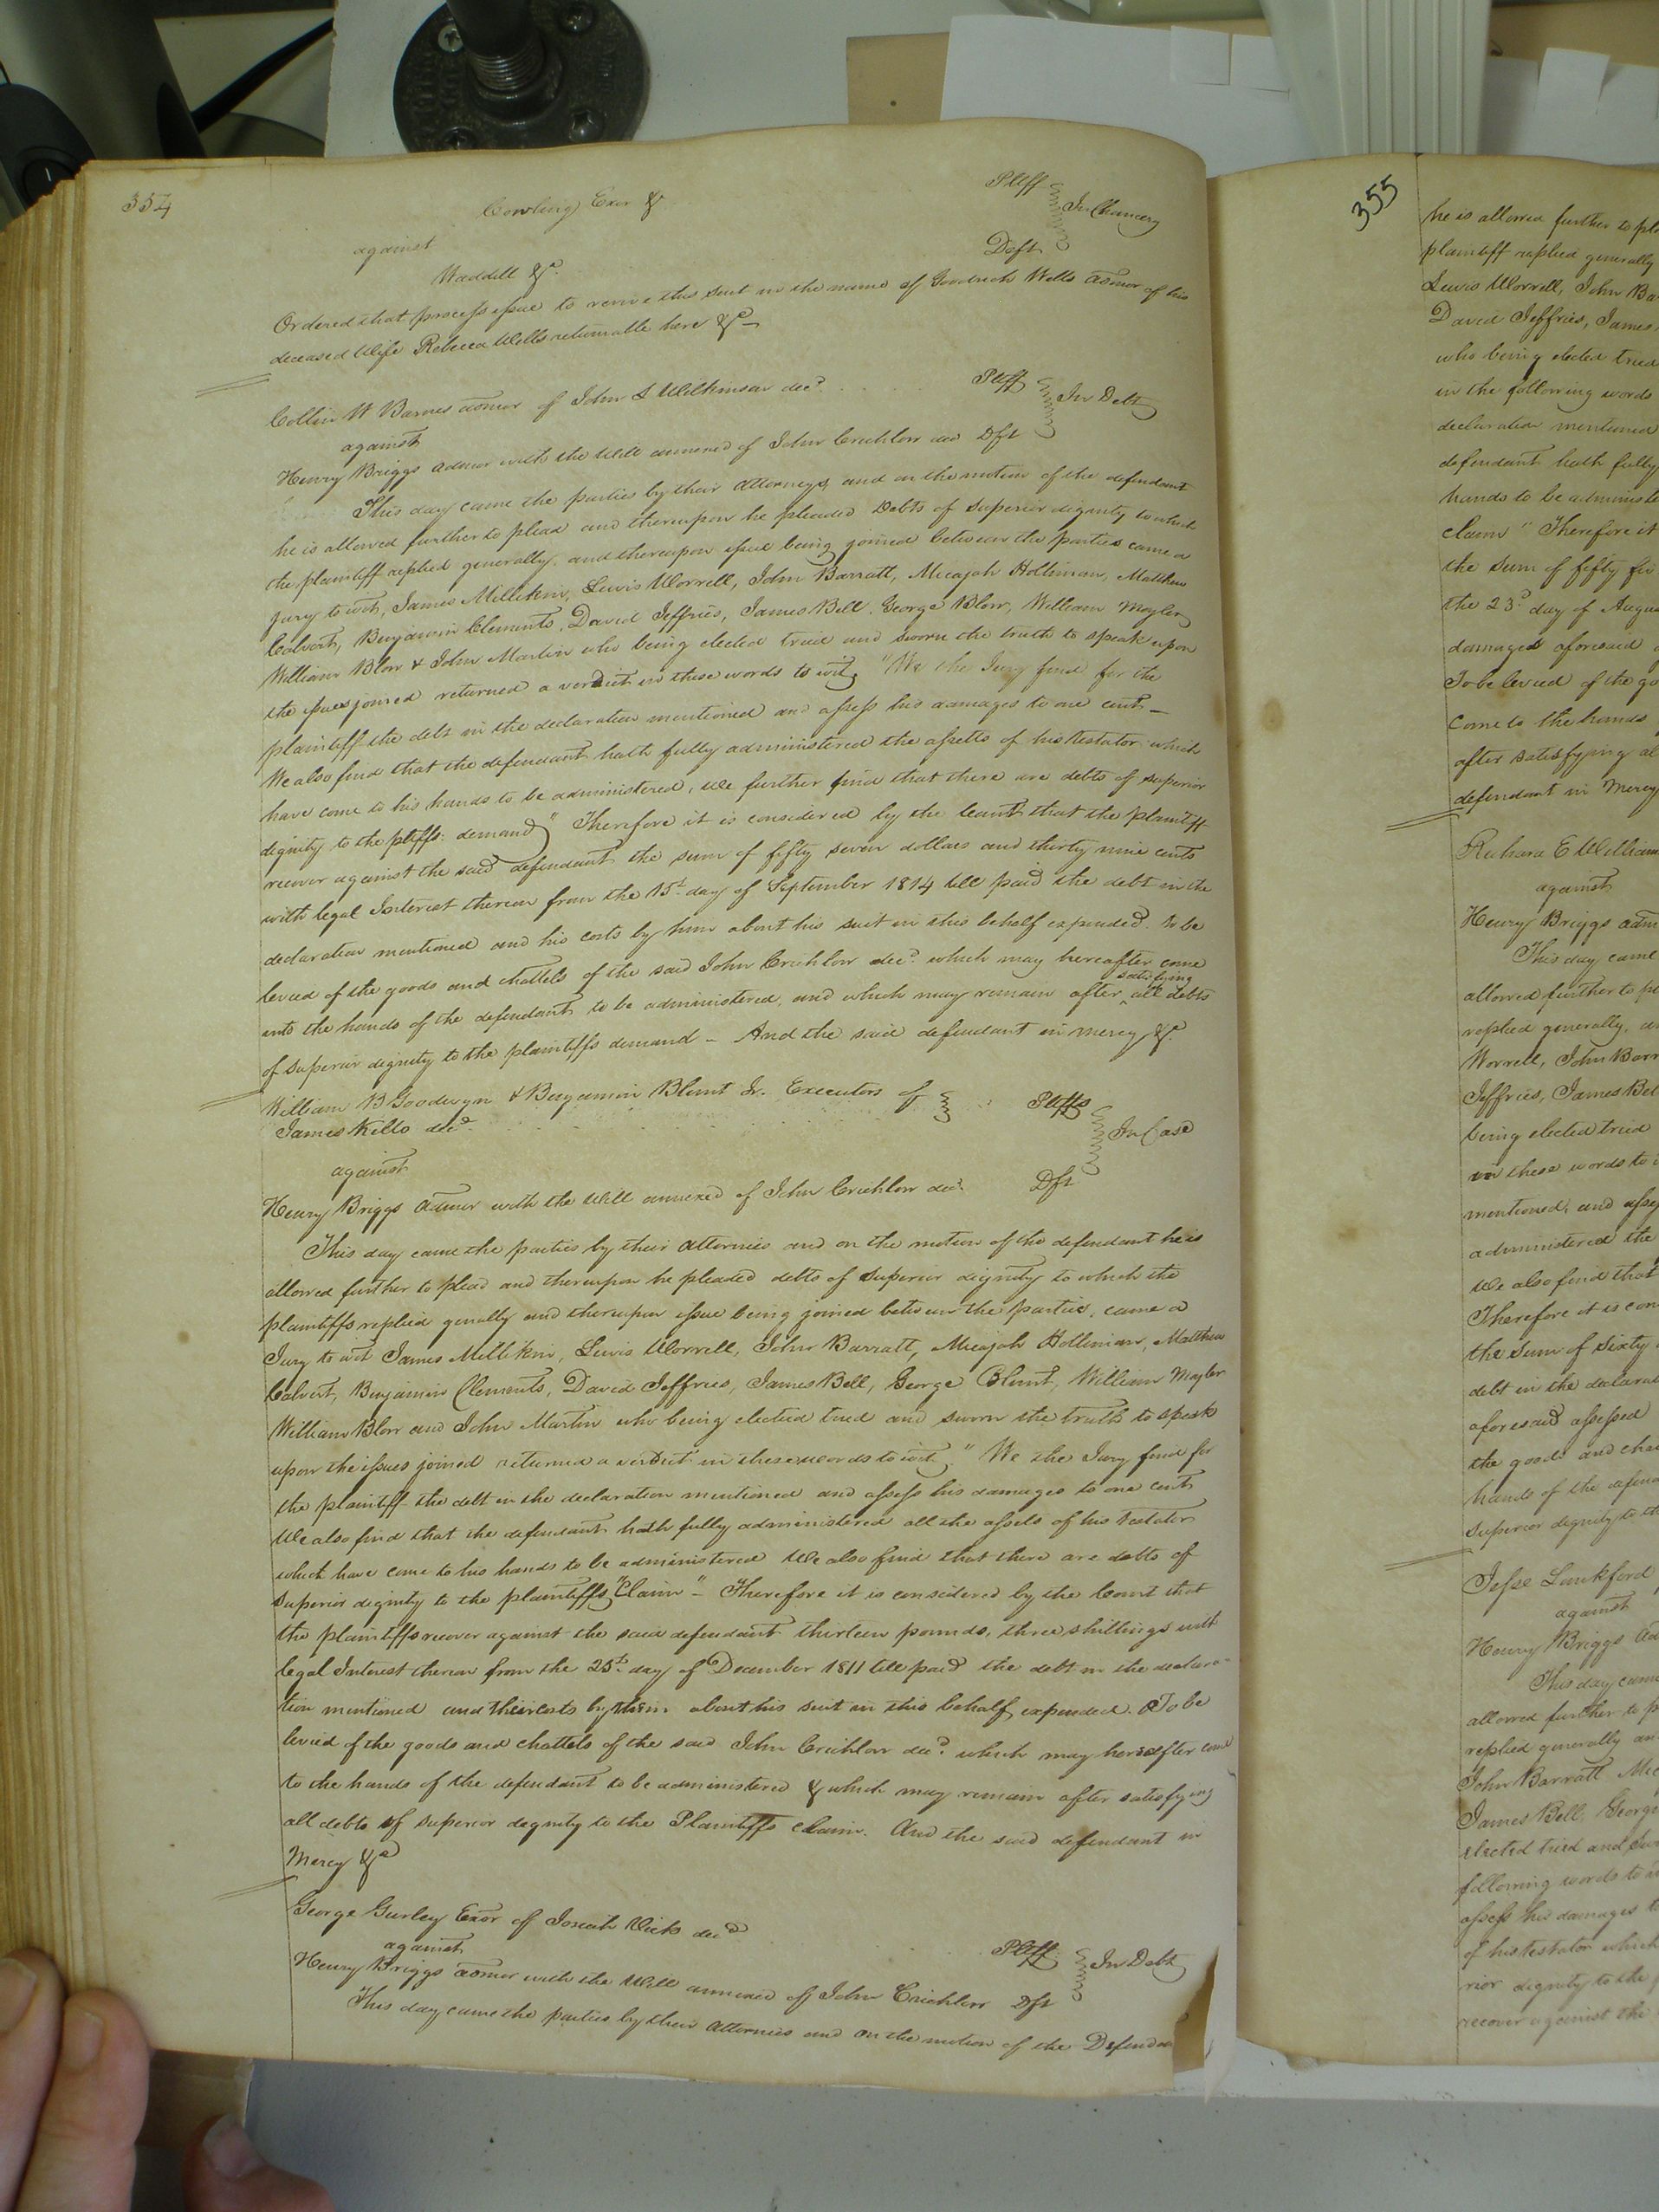 354
Cowling Exor &c Pltff
against In Chancery
Waddill &c. Deft
Ordered that process issue to revive this suit in the name of Goodrich Wells admor of his
deceased Wife Rebecca Wells returnable here &c
Collin W Barnes admor of John S Wilkinson decd. Pltff
against In Debt
Henry Briggs admor with the Will annexed of John Crichlow dec Dft
This day came the parties by their Attorneys, and on the motion of the defendant
he is allowed further to plead and thereupon he pleaded Debts of superior dignity to which
the plaintiff replied generally, and thereupon issue being joined between the parties came a
jury to wit, James Millikin, Lewis Worrell, John Barratt, Micajah Holliman, Matthew
Calvert, Benjamin Clements, David Jeffries, James Bell, George Blow, William Moyler,
William Blow & John Martin who being elected tried and sworn the truth to speak upon
the issues joined returned a verdict in these words to wit, "We the Jury find for the
plaintiff the debt in the declaration mentioned and assess his damages to one cent —
We also find that the defendant hath fully administered the assetts of his testator which
have come to his hands to be administered, we further find that there are debts of superior
dignity to the pltffs: demand" Therefore it is considered by the Court that the plaintiff
recover against the said defendant the sum of fifty seven dollars and thirty nine cents
with legal Interest thereon from the 15t. day of September 1814 till paid the debt in the
declaration mentioned and his costs by him about his suit in this behalf expended. To be
levied of the goods and chattels of the said John Crichlow decd. which may hereafter come
into the hands of the defendant to be administered, and which may remain after satisfying all debts
of superior dignity to the plaintiffs demand – And the said defendant in mercy &c.
William B Goodwyn & Benjamin Blunt Jr. Executors of Pltffs
James Kello decd. In Case
against
Henry Briggs Admor with the Will annexed of John Crichlow decd. Dft
This day came the parties by their Attornies and on the motion of the defendant he is
allowed further to plead and thereupon he pleaded debts of superior dignity to which the
plaintiffs replied genally and thereupon issue being joined between the parties, came a
Jury to wit James Millikin, Lewis Worrell, John Barratt, Micajah Holliman, Matthew
Calvert, Benjamin Clements, David Jeffries, James Bell, George Blunt, William Moyler
William Blow and John Martin who being elected tried and sworn the truth to speak
upon the issues joined returned a verdict in these words to wit, "We the Jury find for
the plaintiff the debt in the declaration mentioned and assess his damages to one cent
We also find that the defendant hath fully administered all the assets of his testator
which have come to his hands to be administered We also find that there are debts of
superior dignity to the plaintiffs "Claim" – Therefore it is considered by the Court that
the plaintiffs recover against the said defendant thirteen pounds, three shillings with
legal Interest thereon from the 25t. day of December 1811 till paid the debt in the declara-
tion mentioned and their costs by them about his suit in this behalf expended. To be
levied of the goods and chattels of the said John Crichlow decd. which may hereafter come
to the hands of the defendant to be administered & which may remain after satisfying
all debts of superior dignity to the Plaintiffs claim. And the said defendant in
Mercy &c
George Gurley Exor of Josiah Vick decd
against Pltff In Debt
Henry Briggs admor with the Will annexed of John Crichlow Dft
This day came the parties by their Attornies and on the motion of the Defenda
355
he is allowed further to pl
plaintiff replied generally
Lewis Worrell, John Ba
David Jeffries, James
who being elected tried
in the following words
declaration mentioned
defendant hath fully
hands to be administe
claim" Therefore it
the sum of fifty fi
the 23d. day of Augu
damages aforesaid
To be levied of the go
come to the hands
after satisfying al
defendant in Mercy
Richard E William
against
Henry Briggs adm
This day came
allowed further to pl
replied generally, an
Worrell, John Barr
Jeffries, James Bel
being elected tried
in these words to
mentioned, and asse
administered the
We also find that
Therefore it is con
the sum of sixty
debt in the declarat
aforesaid assessed
the goods and cha
hands of the defen
superior dignity to th
Jesse Lankford
against
Henry Briggs Ad
This day came
allowed further to p
replied generally an
John Barratt Mic
James Bell, George
elected tried and sw
following words to w
assess his damages t
of his testator which
rior dignity to the
recover against the